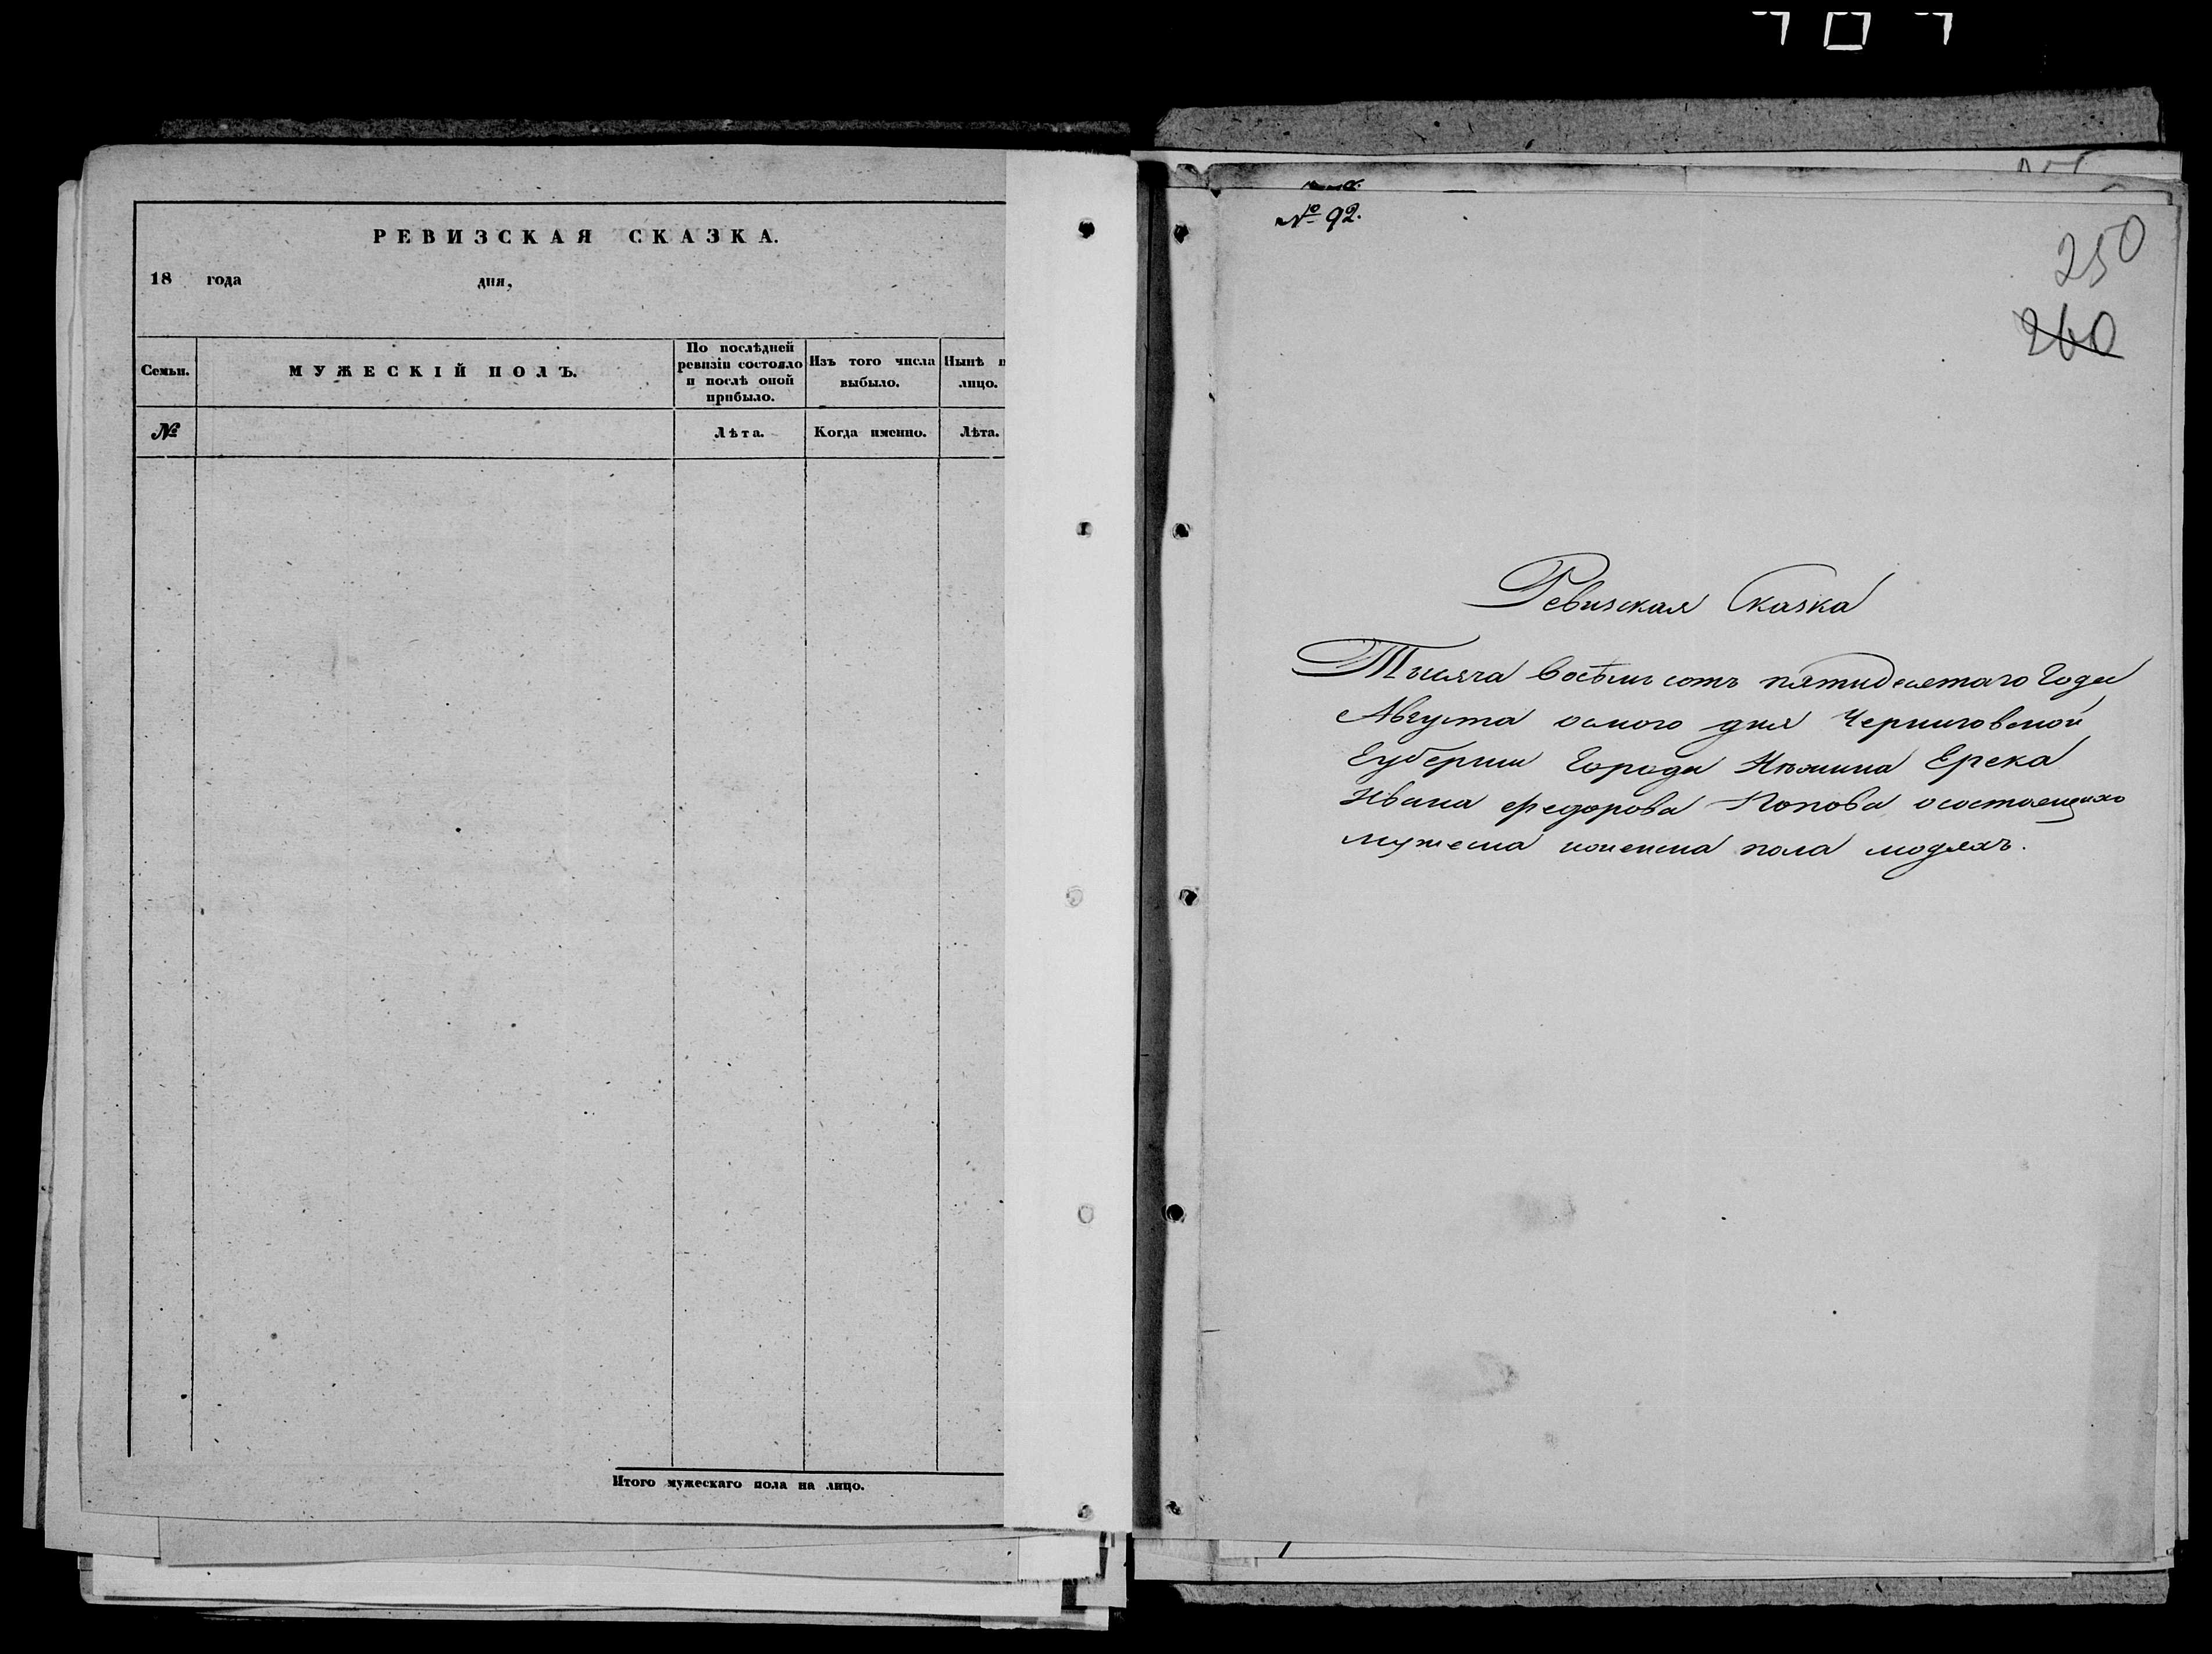 РЕВИЗСКАЯ СКАЗКА.
18 года дня,
Семьи.
МУЖЕСКІЙ ПОЛЪ.
По послѣдней
ревизіи состояло
и послѣ оной
прибыло.
Изъ того числа
выбыло.
Нынѣ н
лицо.
№
Лѣта.
Когда именно.
Лѣта.
Итого мужескаго пола на лицо.
№ 92.
250
260
Ревизская Сказка
Тысяча восѣмь сотъ пятидесятаго Года
Августа осмого дня Черниговской
Губернии Города Нѣжина Грека
Ивана Федорова Попова о состоящихъ
мужеска и женска пола людяхъ.